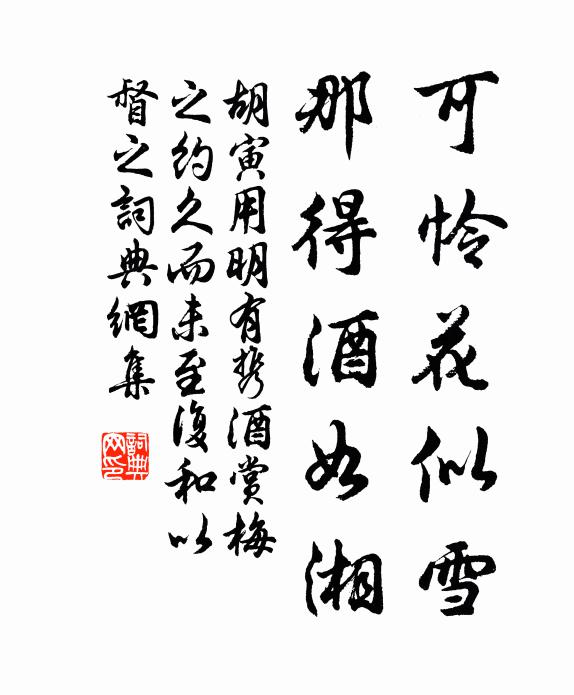 可怜花似雪
那得酒如湘
胡寅用明有携酒赏梅
之约久而未至復和以
督之詞典網集
詞典網印